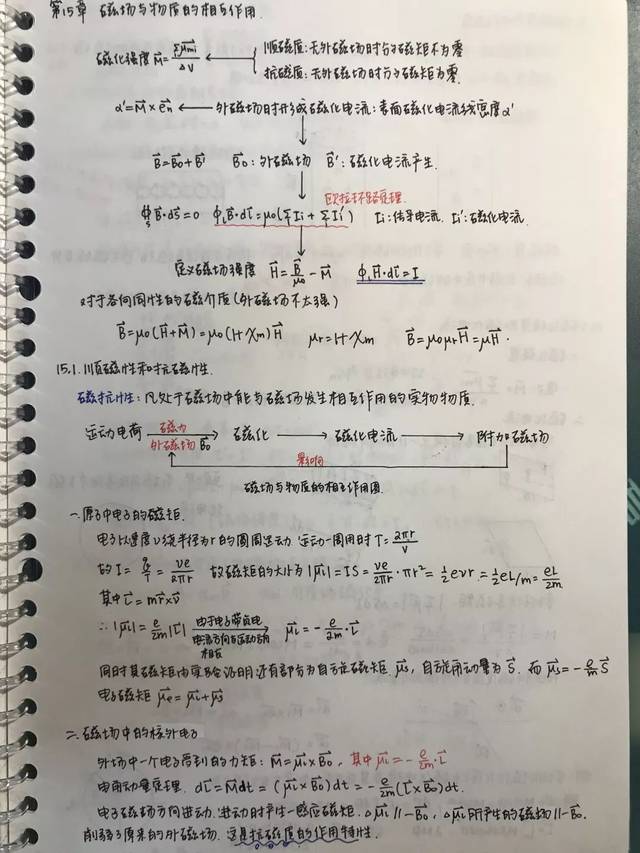 第15章 磁场与物质的相互作用.
磁化强度 M⃗ = Σμ⃗mi / ΔV ← 顺磁质:无外磁场时分子磁矩不为零
抗磁质:无外磁场时分子磁矩为零.
α' = M⃗ × e⃗n ← 外磁场时形成磁化电流:表面磁化电流线密度 α'
B⃗ = B⃗0 + B⃗' B⃗0:外磁场 B⃗':磁化电流产生.
安培环路定理.
∮s B⃗·dS⃗ = 0 ∮L B⃗·dl⃗ = μ0(ΣIi + ΣIi') Ii:传导电流. Ii':磁化电流.
定义磁场强度 H⃗ = B⃗/μ0 - M⃗ ∮L H⃗·dl⃗ = I
对于各向同性的磁介质(外磁场不太强)
B⃗ = μ0(H⃗+M⃗) = μ0(1+χm)H⃗ μr = 1+χm B⃗ = μ0μrH⃗ = μH⃗.
15.1. 顺磁性和抗磁性.
:凡处于磁场中能与磁场发生相互作用的实物物质.
运动电荷 磁力 外磁场B⃗0 → 磁化 → 磁化电流 → 附加磁场
影响
磁场与物质的相互作用图.
一.原子中电子的磁矩.
电子以速度v绕半径为r的圆周运动 运动一周用时 T = 2πr/v
故 I = q/T = ve/2πr 故磁矩的大小为 |μ⃗l| = IS = ve/2πr · πr² = ½evr = ½eL/m = eL/2m
其中 L⃗ = mr⃗×v⃗
∴ |μ⃗l| = e/2m |L⃗| 由于电子带负电 电流方向与运动方向相反 → μ⃗l = - e/2m · L⃗
同时其磁矩由实验证明还有部分为自旋磁矩 μ⃗s, 自旋角动量为 S⃗. 而 μ⃗s = - e/m S⃗
电子磁矩 μ⃗e = μ⃗l + μ⃗s
二.磁场中的核外电子
外场中一个电子受到的力矩: M⃗ = μ⃗l × B⃗0, 其中 μ⃗l = - e/2m · L⃗
由角动量定理. dL⃗ = M⃗dt = (μ⃗l × B⃗0)dt = - e/2m (L⃗ × B⃗0)dt.
电子磁场方向进动. 进动时产生一感应磁矩. Δμ⃗l // -B⃗0. Δμ⃗l 所产生的磁场 // -B⃗0.
削弱了原来的外磁场. 这是抗磁质的作用特性.